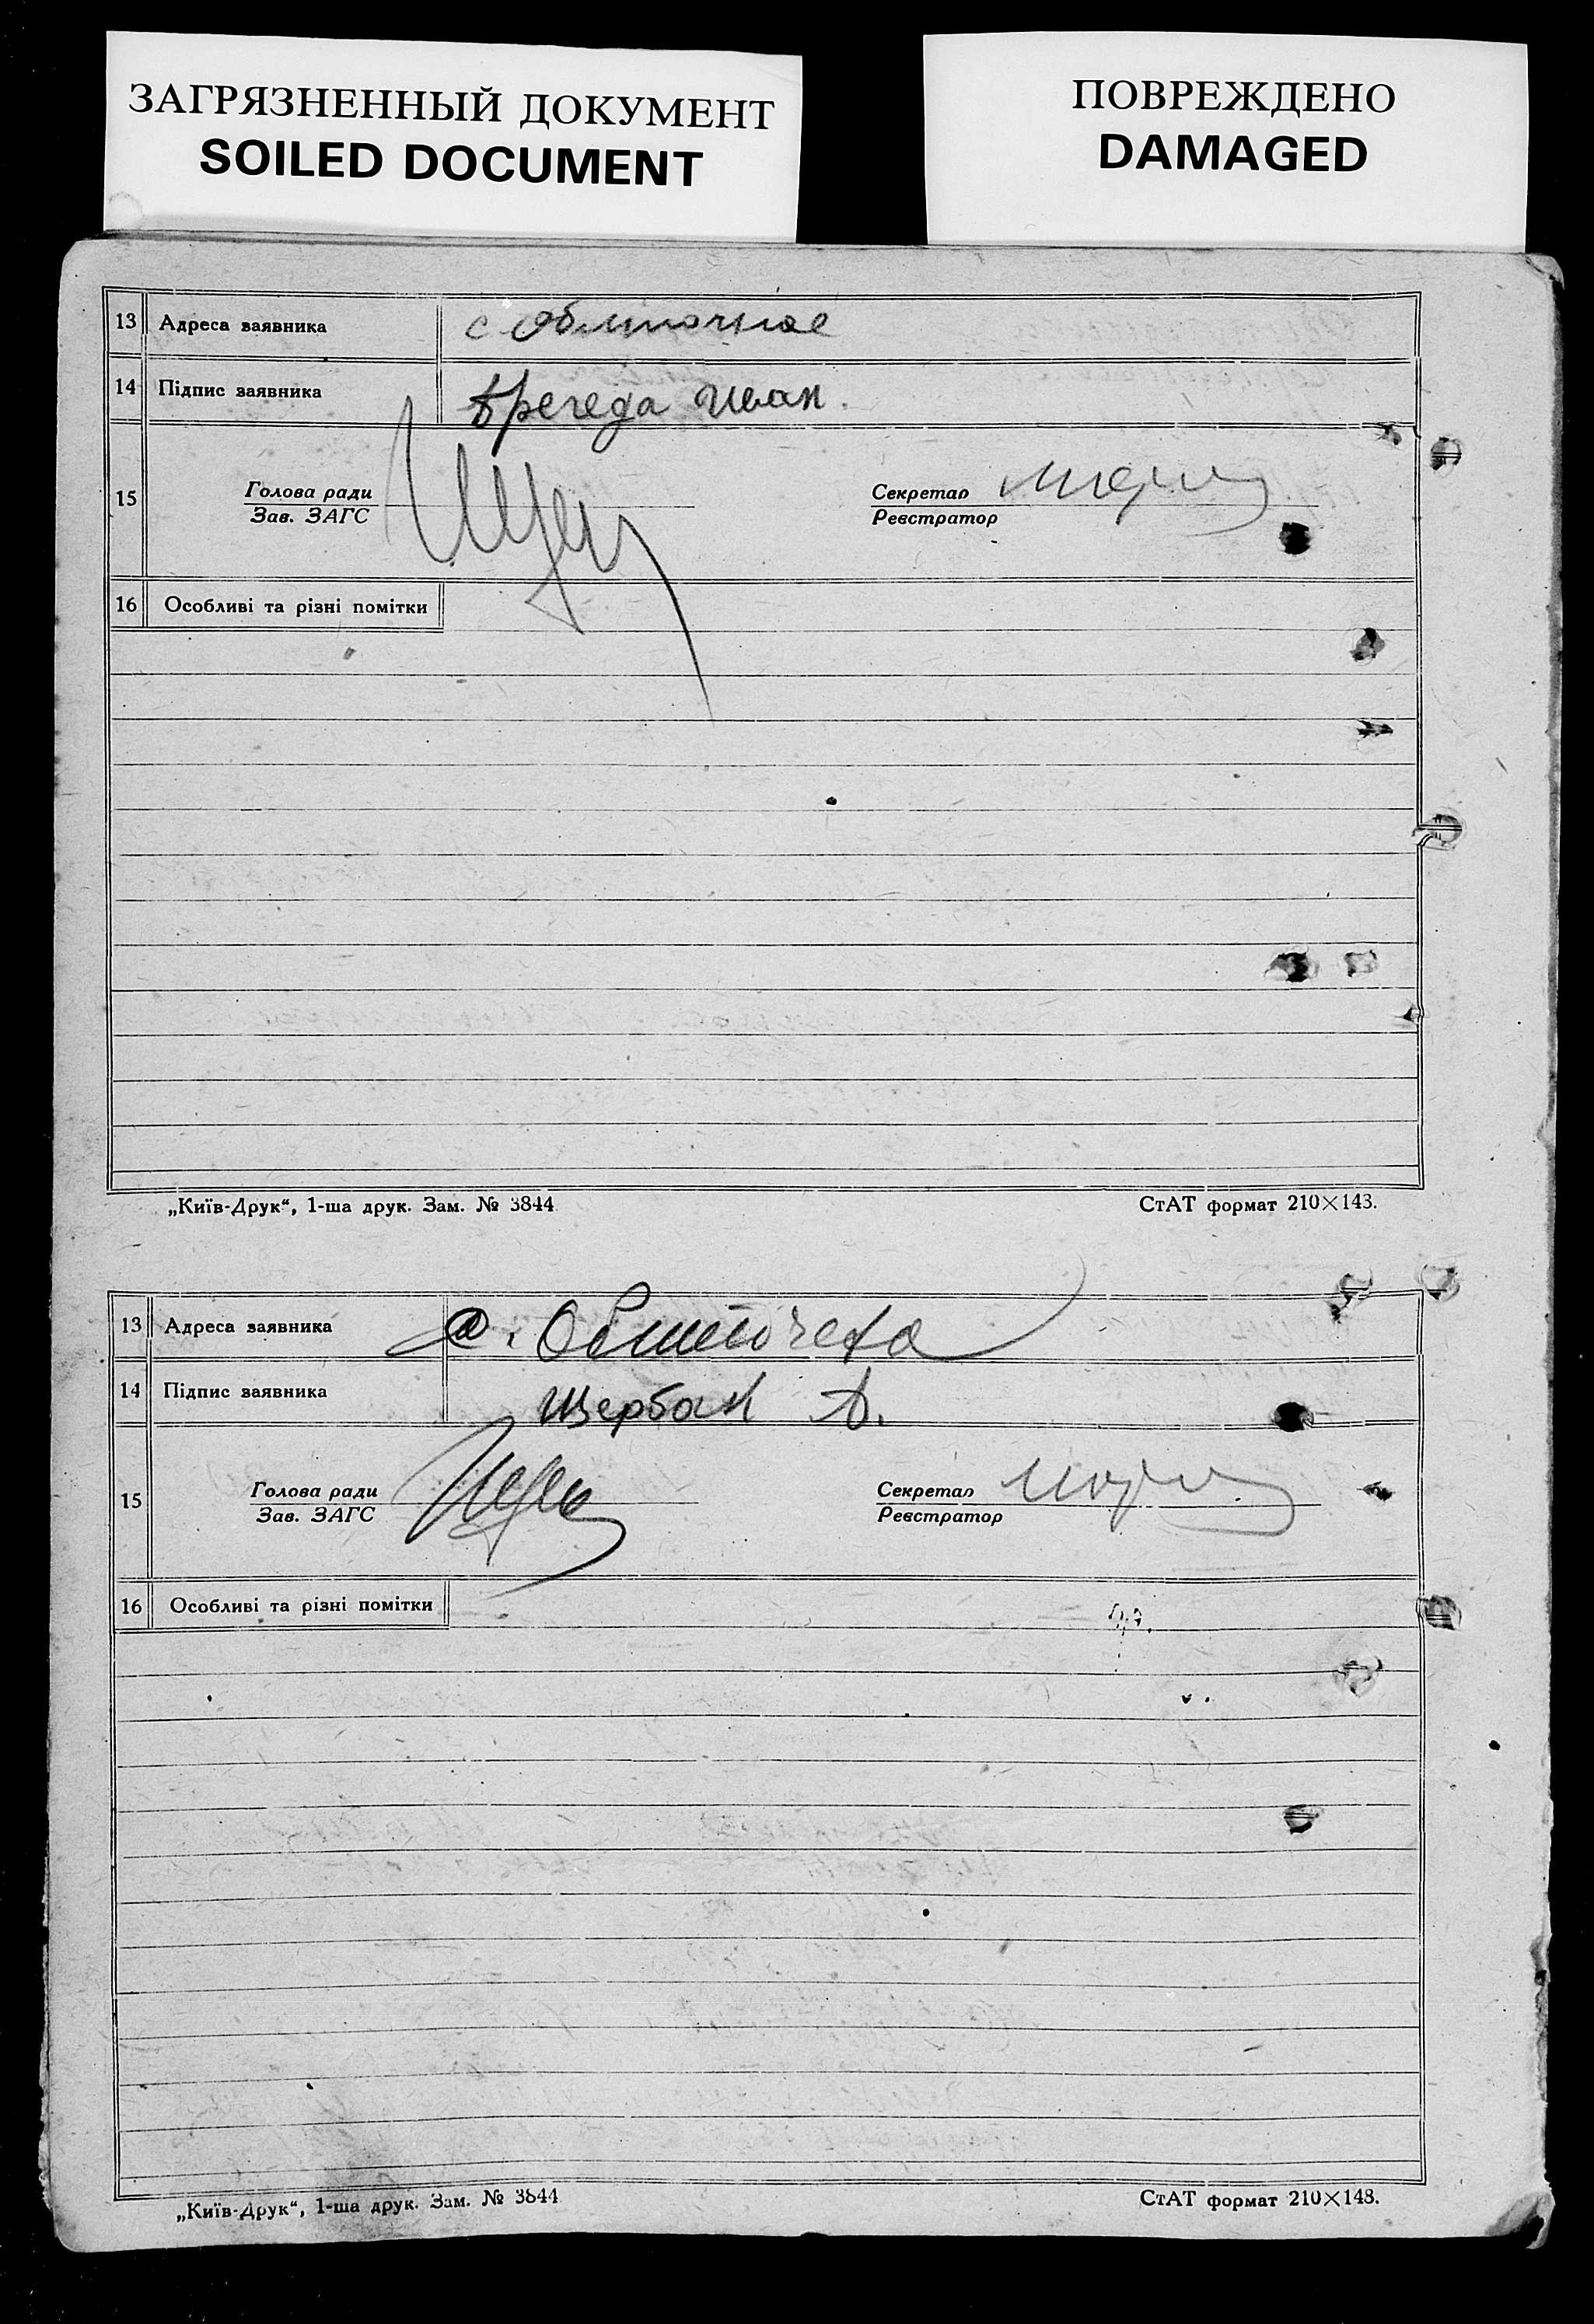 ЗАГРЯЗНЕННЫЙ ДОКУМЕНТ
SOILED DOCUMENT
ПОВРЕЖДЕНО
DAMAGED
13 Адреса заявника с Обиточное
14 Підпис заявника Брегеда Иван.
15 Голова ради Секретар
Зав. ЗАГС Реєстратор
16 Особливі та різні помітки
„Київ-Друк“, 1-ша друк. Зам. № 3844 СтАТ формат 210×143.
13 Адреса заявника с. Обиточена
14 Підпис заявника Щербак А.
15 Голова ради Секретар
Зав. ЗАГС Реєстратор
16 Особливі та різні помітки
„Київ-Друк“, 1-ша друк. Зам. № 3844 СтАТ формат 210×148.